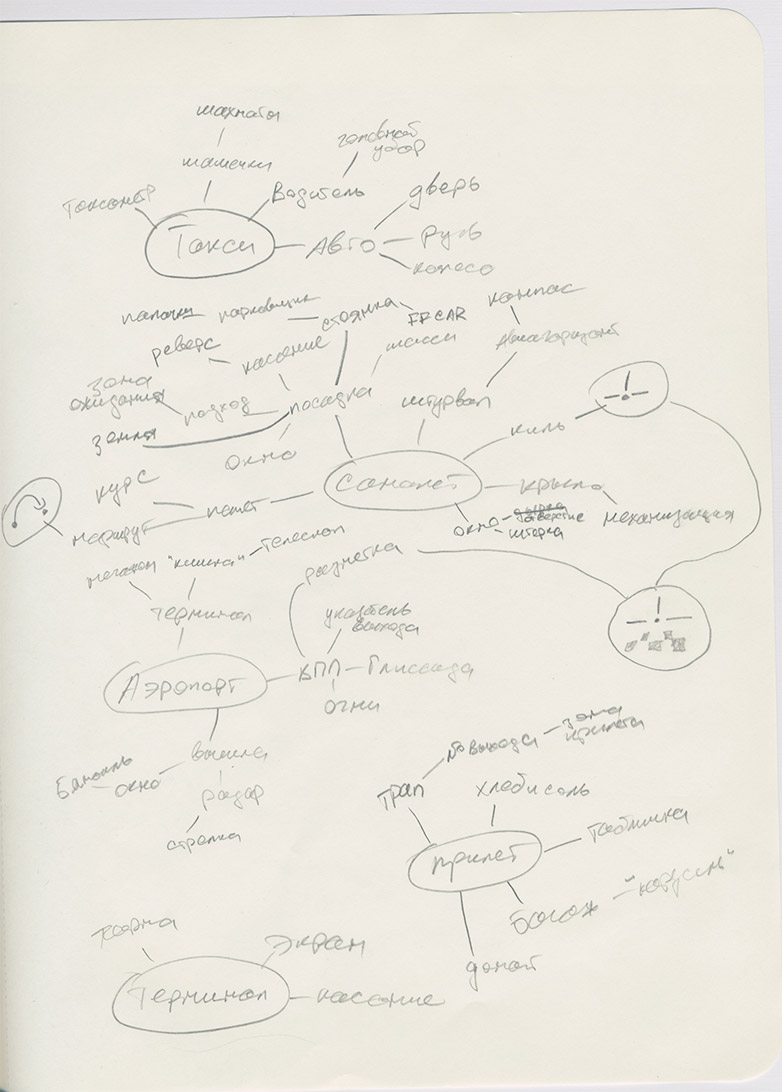 шахматы
шашечки
головной
убор
Таксометр
Водитель
дверь
Такси
Авто
Руль
колесо
палочки
парковщик
стоянка
компас
реверс
касание
шасси
Авиагоризонт
зона
ожидания
подход
посадка
штурвал
земля
киль
окно
Самолет
крыло
курс
полет
окно
отверстие
шторка
механизация
маршрут
"кишка"
телескоп
разметка
терминал
указатель
выхода
Аэропорт
ВПП
Глиссада
огни
вышка
Бинокль
окно
радар
стрелка
№ выхода
зона
прилета
Трап
хлеб и соль
табличка
прилет
багаж
домой
форма
экран
Терминал
касание